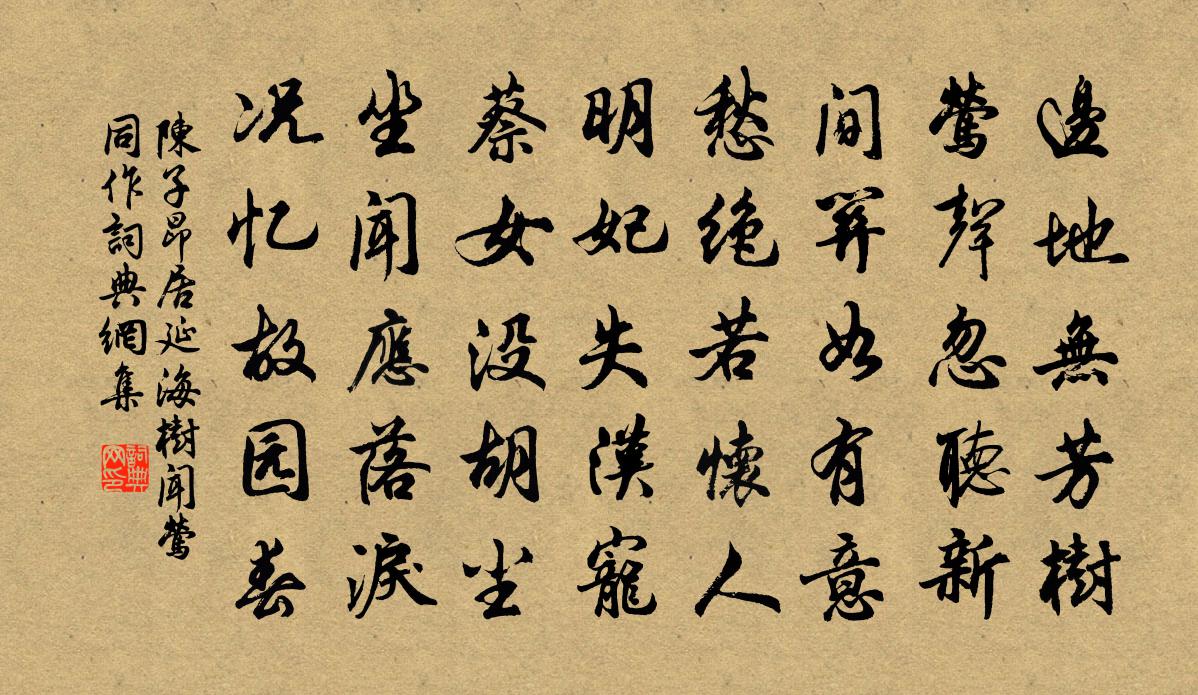 邊地無芳樹
鶯聲忽聽新
間關如有意
愁绝若懷人
明妃失漢寵
蔡女没胡尘
坐闻應落淚
况忆故园春
陳子昂居延海樹闻鶯
同作詞典網集
詞典网印